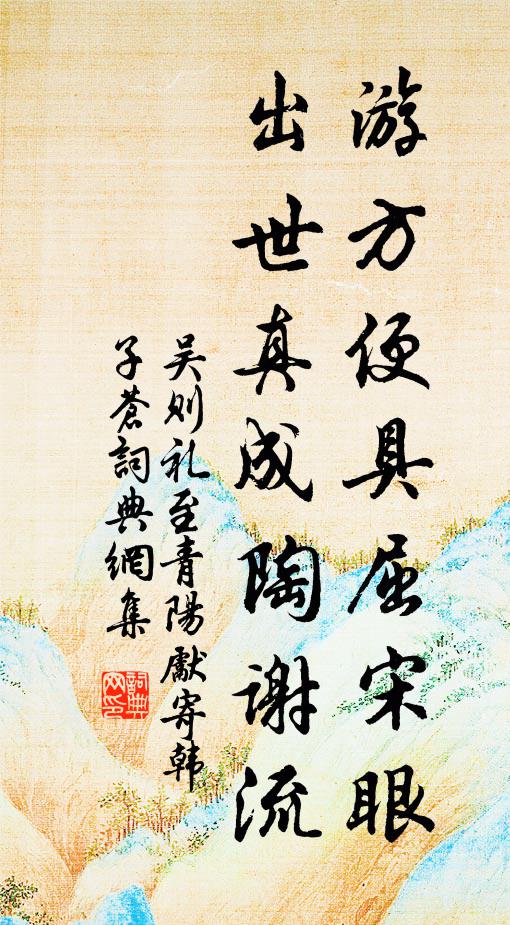 游方便具屈宋眼
出世真成陶谢流
吴则礼至青陽獻寄韩
子蒼詞典網集
詞典
网印